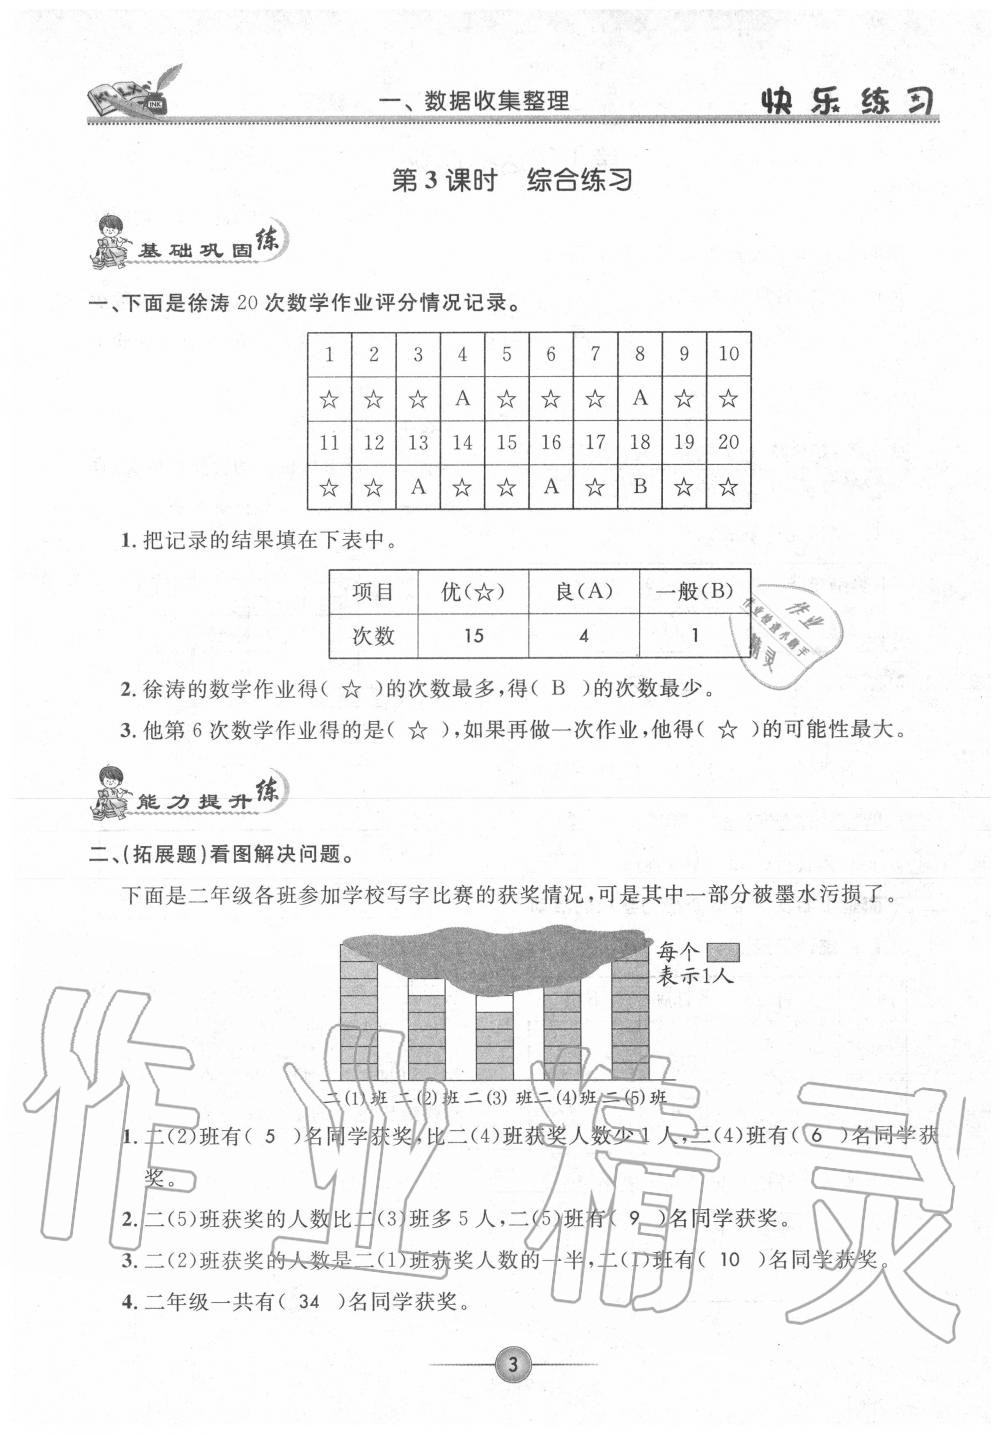 一、数据收集整理
快乐练习
第3课时 综合练习
基础巩固练
一、下面是徐涛20次数学作业评分情况记录。
1 2 3 4 5 6 7 8 9 10
☆ ☆ ☆ A ☆ ☆ ☆ A ☆ ☆
11 12 13 14 15 16 17 18 19 20
☆ ☆ A ☆ ☆ A ☆ B ☆ ☆
1.把记录的结果填在下表中。
项目 优(☆) 良(A) 一般(B)
次数 15 4 1
2.徐涛的数学作业得( ☆ )的次数最多,得( B )的次数最少。
3.他第6次数学作业得的是( ☆ ),如果再做一次作业,他得( ☆ )的可能性最大。
能力提升练
二、(拓展题)看图解决问题。
下面是二年级各班参加学校写字比赛的获奖情况,可是其中一部分被墨水污损了。
每个
表示1人
二(1)班 二(2)班 二(3)班 二(4)班 二(5)班
1.二(2)班有( 5 )名同学获奖,比二(4)班获奖人数少1人,二(4)班有( 6 )名同学获
奖。
2.二(5)班获奖的人数比二(3)班多5人,二(5)班有( 9 )名同学获奖。
3.二(2)班获奖的人数是二(1)班获奖人数的一半,二(1)班有( 10 )名同学获奖。
4.二年级一共有( 34 )名同学获奖。
3
作业精灵
作业
作业检查小助手
精灵